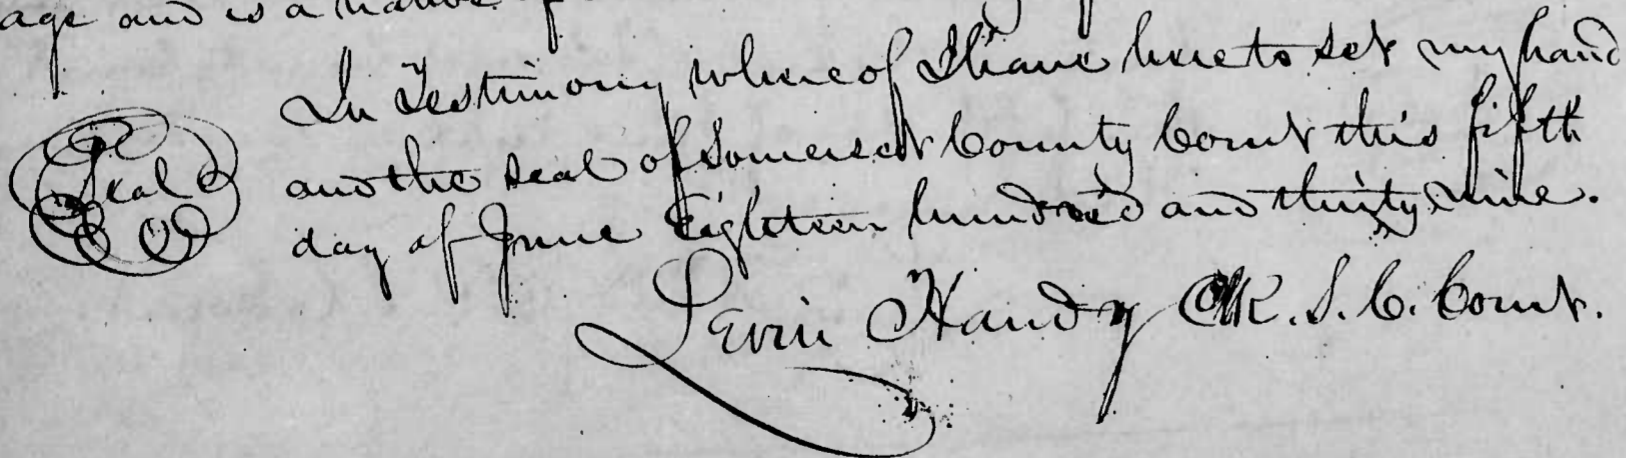 age and is a native of
In Testimony whereof I have hereto set my hand
and the seal of Somerset County Court this fifth
Seal
day of June Eighteen hundred and thirty nine.
Levin Handy Clk. S. C. Court.